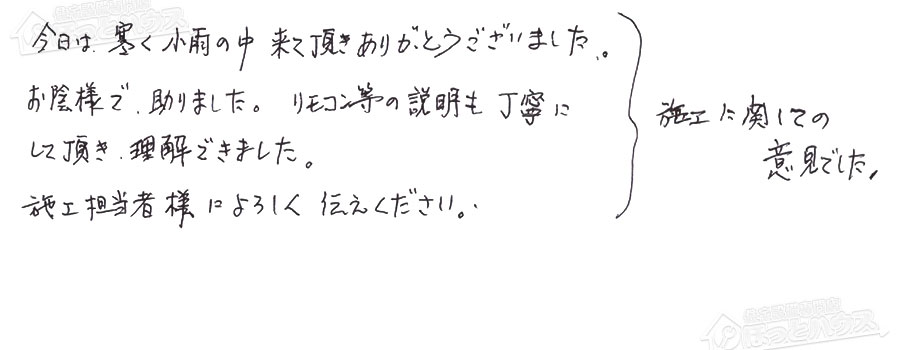 今日は、寒く小雨の中 来て頂きありがとうございました。
お陰様で、助りました。 リモコン等の説明も 丁寧に
して頂き、理解できました。
施工担当者様によろしく 伝えください。
施工に関しての
意見でした。
住宅設備専門店
ほっとハウス